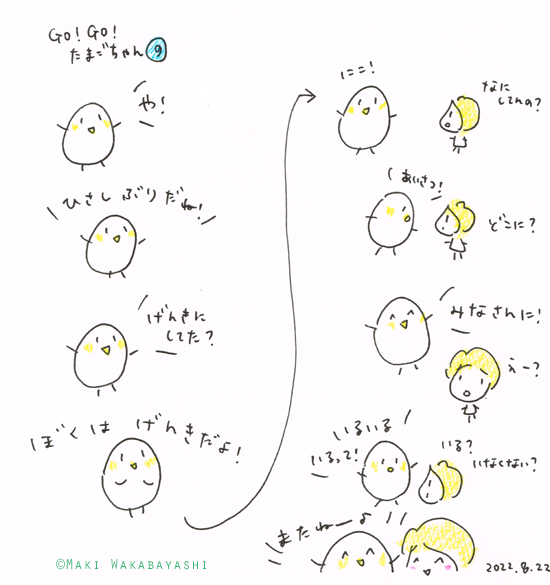 GO! GO!
たまごちゃん 9
や!
ひさしぶりだね!
げんきに
してた?
ぼくは げんきだよ!
にこ!
なに
してんの?
あいさつ!
どこに?
みなさんに!
えー?
いるいる
いるって!
いる?
いなくない?
またねーよ
2022.8.22
©MAKI WAKABAYASHI